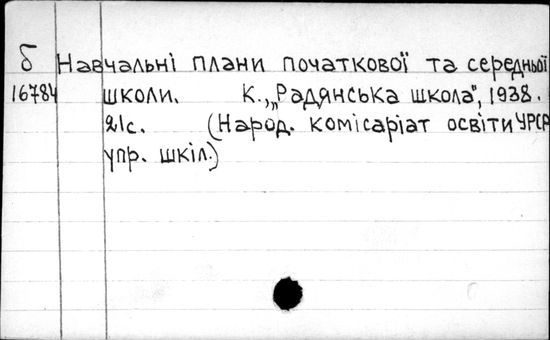 б Навчальні плани початкової та середньої
16784 школи. К., „Радянська школа", 1938.
21с. (Народ. комісаріат освіти УРСР
упр. шкіл.)